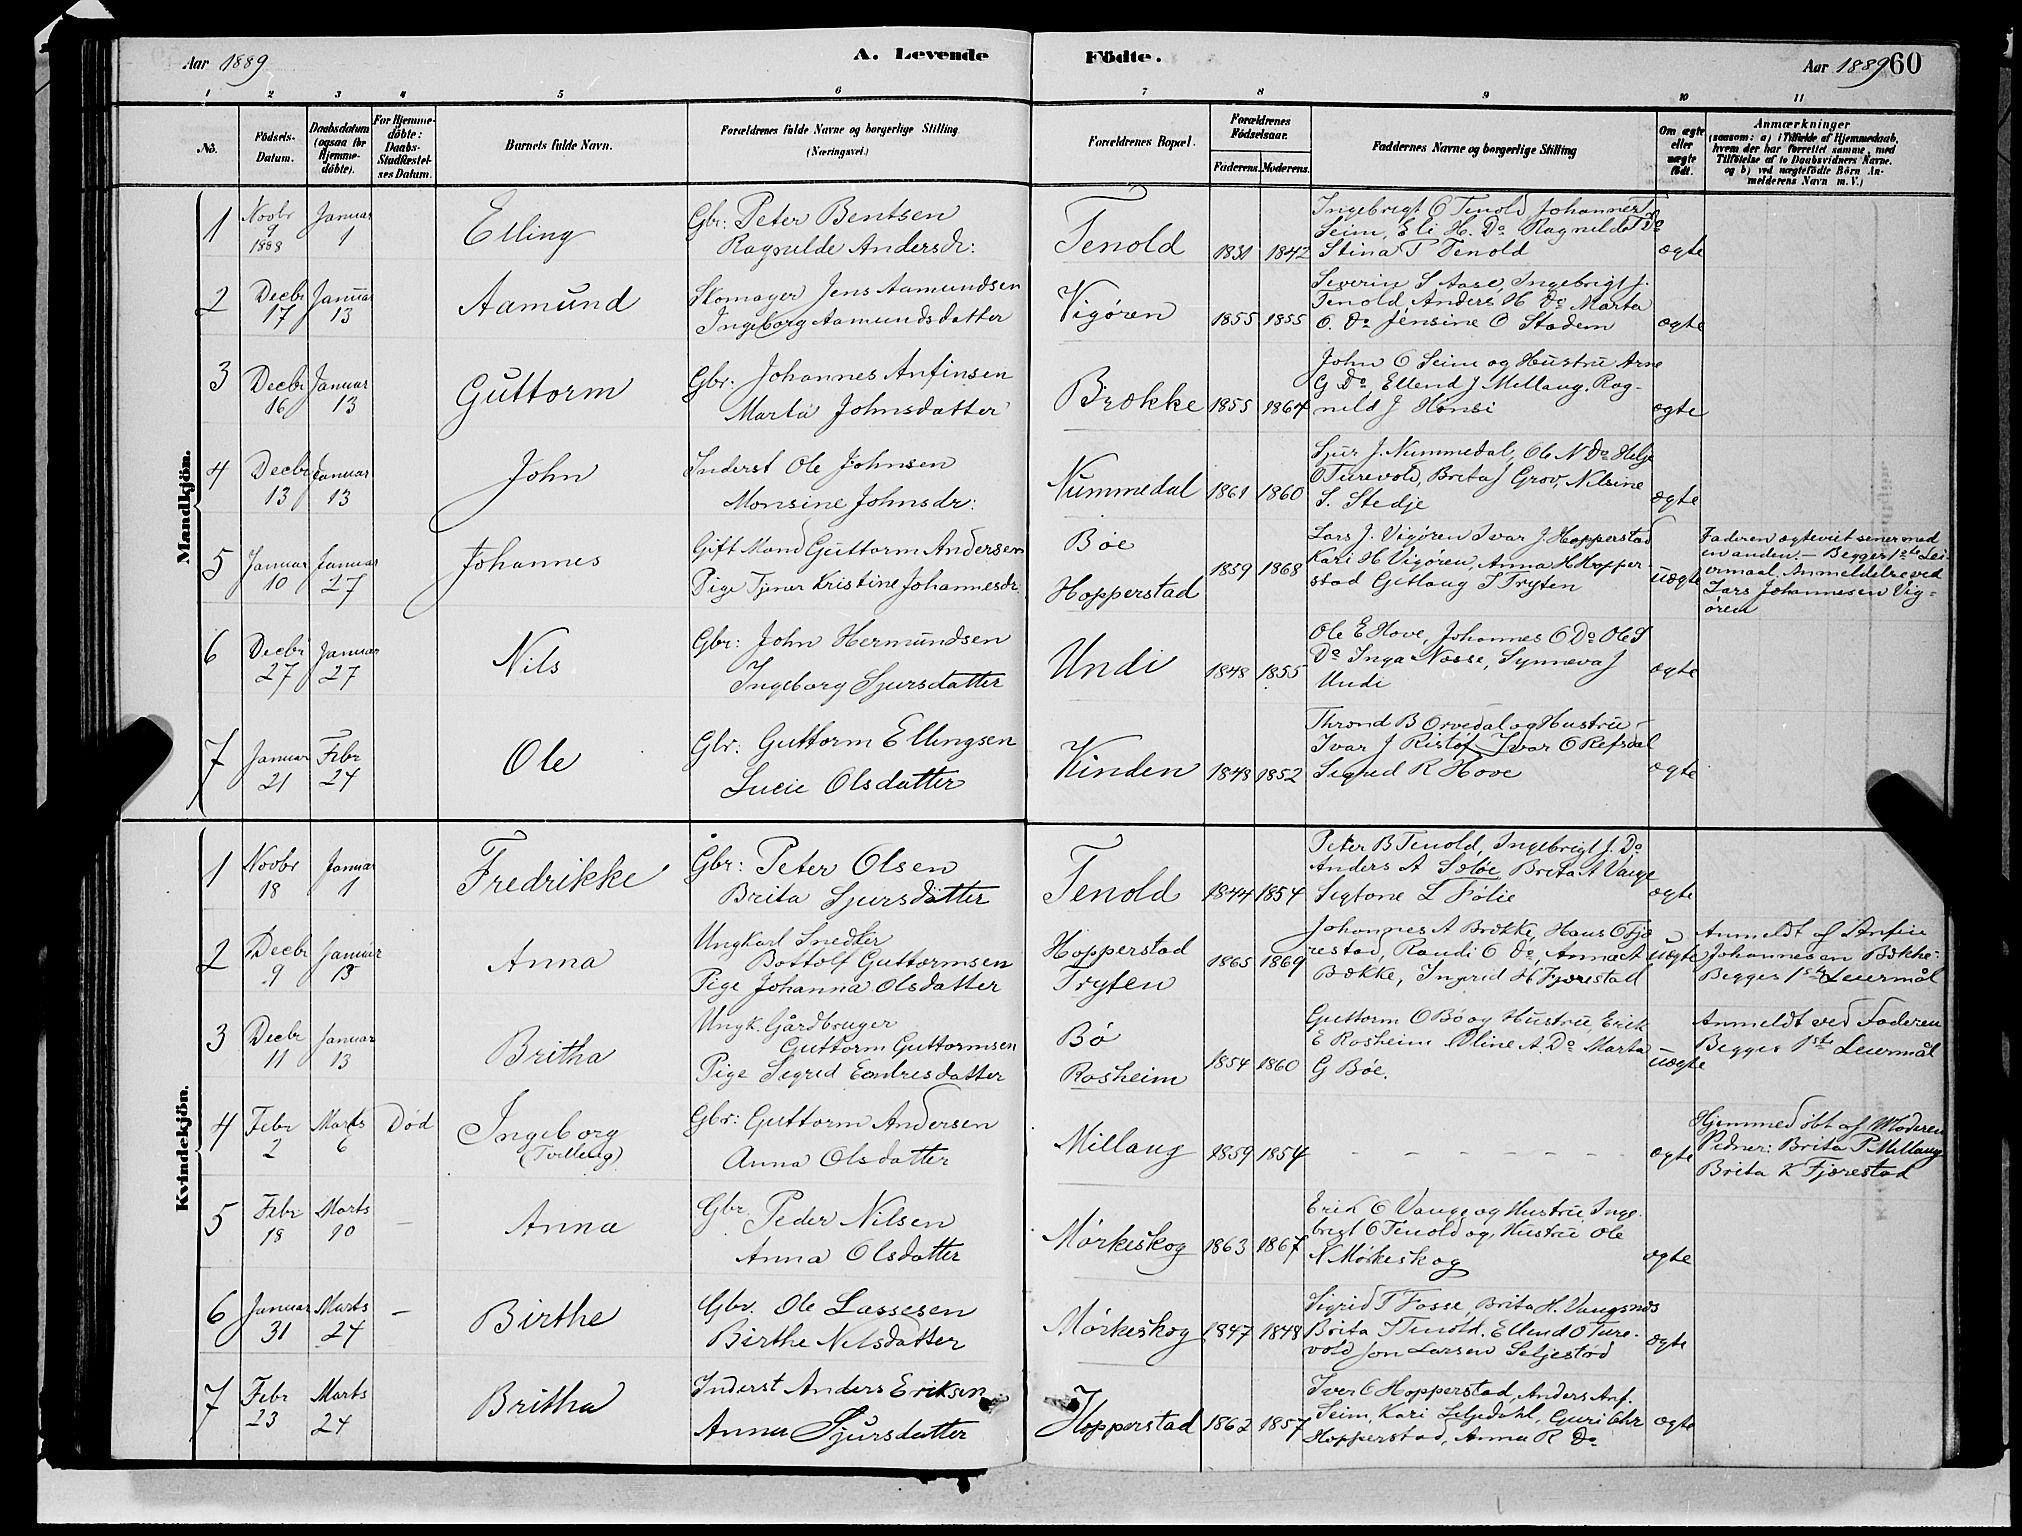 Aar 1889 A. Levende Födte. Aar 1889 60
1 2 3 4 5 6 7 8 9 10 11
No. Födsels-Datum. Daabsdatum (ogsaa for Hjemme-döbte). For Hjemme-döbte: Daabs-Stadfæstel-ses Datum. Barnets fulde Navn. Forældrenes fulde Navne og borgerlige Stilling (Næringsvei.) Forældrenes Bopæl. Forældrenes Födselsaar. Faderens. Moderens. Faddernes Navne og borgerlige Stilling Om ægte eller uægte født. Anmærkninger
(saasom: a) i Tilfælde af Hjemmedaab,
hvem der har forrettet samme, med
Tilföielse af to Daabsvidners Navne,
og b) ved uægtefödte Börn An-
melderens Navn m. V.)
Mandkjön.
1 Novbr 9 1888 Januar 1 Elling Gbr: Peter Bentsen
Ragnilde Andersdr: Tenold 1831 1842 Ingebrigt O Tenold Johannes
Seim, Eli H. Do Ragnilde T Do
Stina P Tenold ægte
2 Decbr 17 Januar 13 Aamund Skomager Jens Aamundsen
Ingeborg Aamundsdatter Vigøren 1855 1855 Severin S Aase, Ingebrigt J.
Tenold Anders H Do Marta
O. Do Jensine O Stadem ægte
3 Decbr 16 Januar 13 Guttorm Gbr: Johannes Anfinsen
Marta Johnsdatter Brække 1855 1864 John O Seim og Hustru Arne
G Do, Ellend J Mellaug, Rag-
nild J Hønsi ægte
4 Decbr 13 Januar 13 John Inderst Ole Johnsen
Monsine Johnsdr: Nummedal 1861 1860 Sjur J. Nummedal, Ole N Do Helje
O Turevold, Brita J Grov, Nilsine
S. Stedje ægte
5 Januar 10 Januar 27 Johannes Gift Mand Guttorm Andersen
Pige Tjener Kristine Johannesdr Bøe
Hopperstad 1859 1868 Lars J. Vigøren Ivar J. Hopperstad
Kari H Vigøren, Anna H Hopper
stad Gitlaug I Tryten uægte Faderen ægteviet senere med
en anden. — Begges 1ste Lei-
ermaal. Anmeldelse ved
Lars Johannesen Vig-
øren
6 Decbr 27 Januar 27 Nils Gbr: John Hermundsen
Ingeborg Sjursdatter Undi 1848 1855 Ole E Hove, Johannes O Do Ole S
Do Inga Næsse, Synneva J
Undi ægte
7 Januar 21 Febr 24 Ole Gbr: Guttorm Ellingsen
Lucie Olsdatter Kinden 1848 1852 Thrond B Orvedal og Hustru -
Ivar J Ristof Ivar O Refsdal
Sigrid R Hove ægte
Kvindekjön.
1 Novbr 18 Januar 1 Fredrikke Gbr: Peter Olsen
Brita Sjursdatter Tenold 1844 1854 Peter B Tenold, Ingebrigt J. Do
Anders A Sæløe, Brita A Vange
Sigtone L Følie ægte
2 Decbr 9 Januar 13 Anna Ungkarl Snedker
Bottolf Guttormsen
Pige Johanna Olsdatter Hopperstad
Tryten 1865 1869 Johannes A Brække, Hans O Fjæ
restad, Randi O Do, Anna A
Bække, Ingrid H Fjærestad uægte Anmeldt af Anfin
Johannesen Bække:
Begges 1ste Leiermål
3 Decbr 11 Januar 13 Britha Ungk. Gårdbruger
Guttorm Guttormsen
Pige Sigrid Endresdatter Bø
Rosheim 1854 1860 Guttorm O Bø og Hustru, Erik
E Rosheim Oline A. Do Marta
G Bøe. uægte Anmeldt ved Faderen
Begges 1ste Leiermål
4 Febr 2 Marts 6 Død Ingeborg
(Tvilling) Gbr: Guttorm Andersen
Anna Olsdatter Millaug 1859 1854 - - - - - - - ægte Hjemmedøbt af Moderen
Vidner: Brita P. Millaug
Brita K Fjærestad
5 Febr 18 Marts 10 — Anna Gbr. Peder Nilsen
Anna Olsdatter Mørkeskog 1863 1867 Erik O Vange og Hustru, Inge-
brigt O Tenold og Hustru Ole
N Mørkeskog ægte
6 Januar 31 Marts 24 — Birthe Gbr. Ole Lassesen
Birthe Nilsdatter Mørkeskog 1847 1848 Sigrid T Fosse, Brita H. Vangsnes
Brita J Tenold. Ellend O Ture-
vold Jon Larsen Seljestød ægte
7 Febr 23 Marts 24 Britha Inderst Anders Eriksen
Anna Sjursdatter Hopperstad 1862 1857 Iver O Hopperstad, Anders Anf.
Seim, Kari Seljedahl, Guri Chr
Hopperstad, Anna R Do ægte